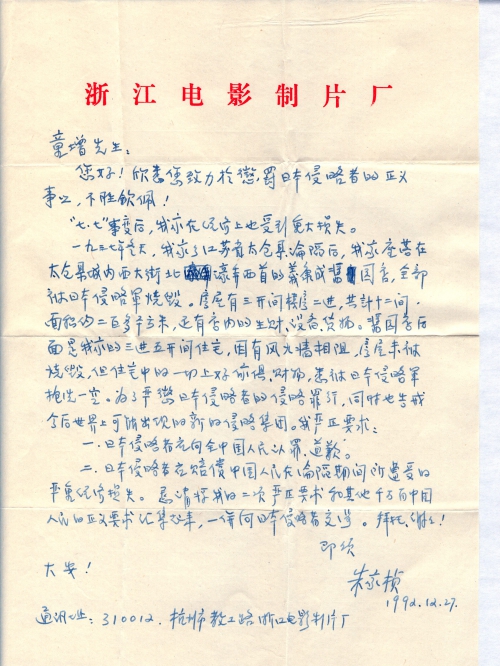 浙江电影制片厂
童增先生:
您好!欣悉您致力于惩罚日本侵略者的正义
事业,不胜钦佩!
"七.七"事变后,我家在经济上也受到重大损失。
一九三七年冬天,我家乡江苏省太仓县沦陷后,我家座落在
太仓县城内西大街北 西首的义泰成酱园店,全部
被日本侵略军烧毁。房屋有三开间楼房二进,共计十二间,
面积约二百多平方米,还有店内的生财、设备、货物。酱园店后
面是我家的三进五开间住宅,因有风火墙相阻,房屋未被
烧毁,但住宅中的一切上好家俱、财物,悉被日本侵略军
抢洗一空。为了严惩日本侵略者的侵略罪行,同时也告戒
今后世界上可能出现的新的侵略集团。我严正要求:
一.日本侵略者应向全中国人民认罪、道歉。
二.日本侵略者应赔偿中国人民在沦陷期间所遭受的
严重经济损失。恳请将我的二次严正要求和其他千百万中国
人民的正义要求汇集起来,一併向日本侵略者交涉。拜托,谢谢!
即颂
大安!
朱家桢
1992.12.27.
通讯地址:310012.杭州市教工路浙江电影制片厂